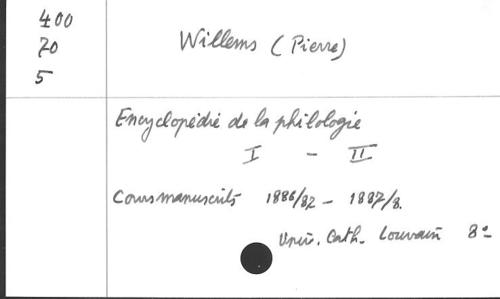 400
70
5
Willems (Pierre)
Encyclopédie de la philologie
I - II
Cours manuscrits 1886/87 - 1887/8.
Univ. Cath. Louvain 8°